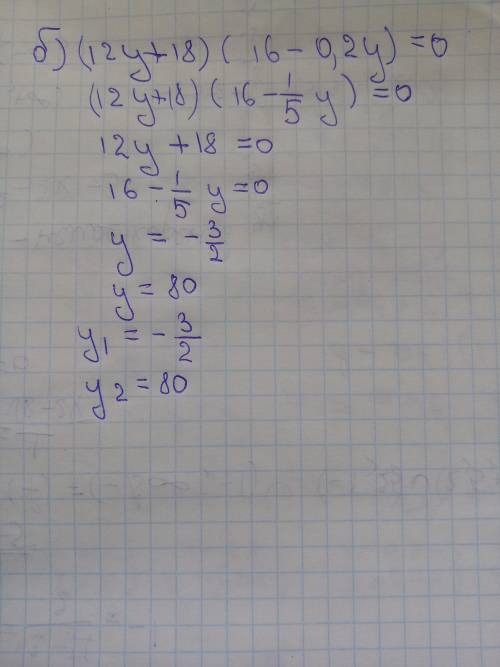 б) (12y+18) ( 16 - 0,2y) = 0
(12y+18) ( 16 - 1/5 y ) = 0
12y + 18 = 0
16 - 1/5 y = 0
y = - 3/2
y = 80
y₁ = - 3/2
y₂ = 80